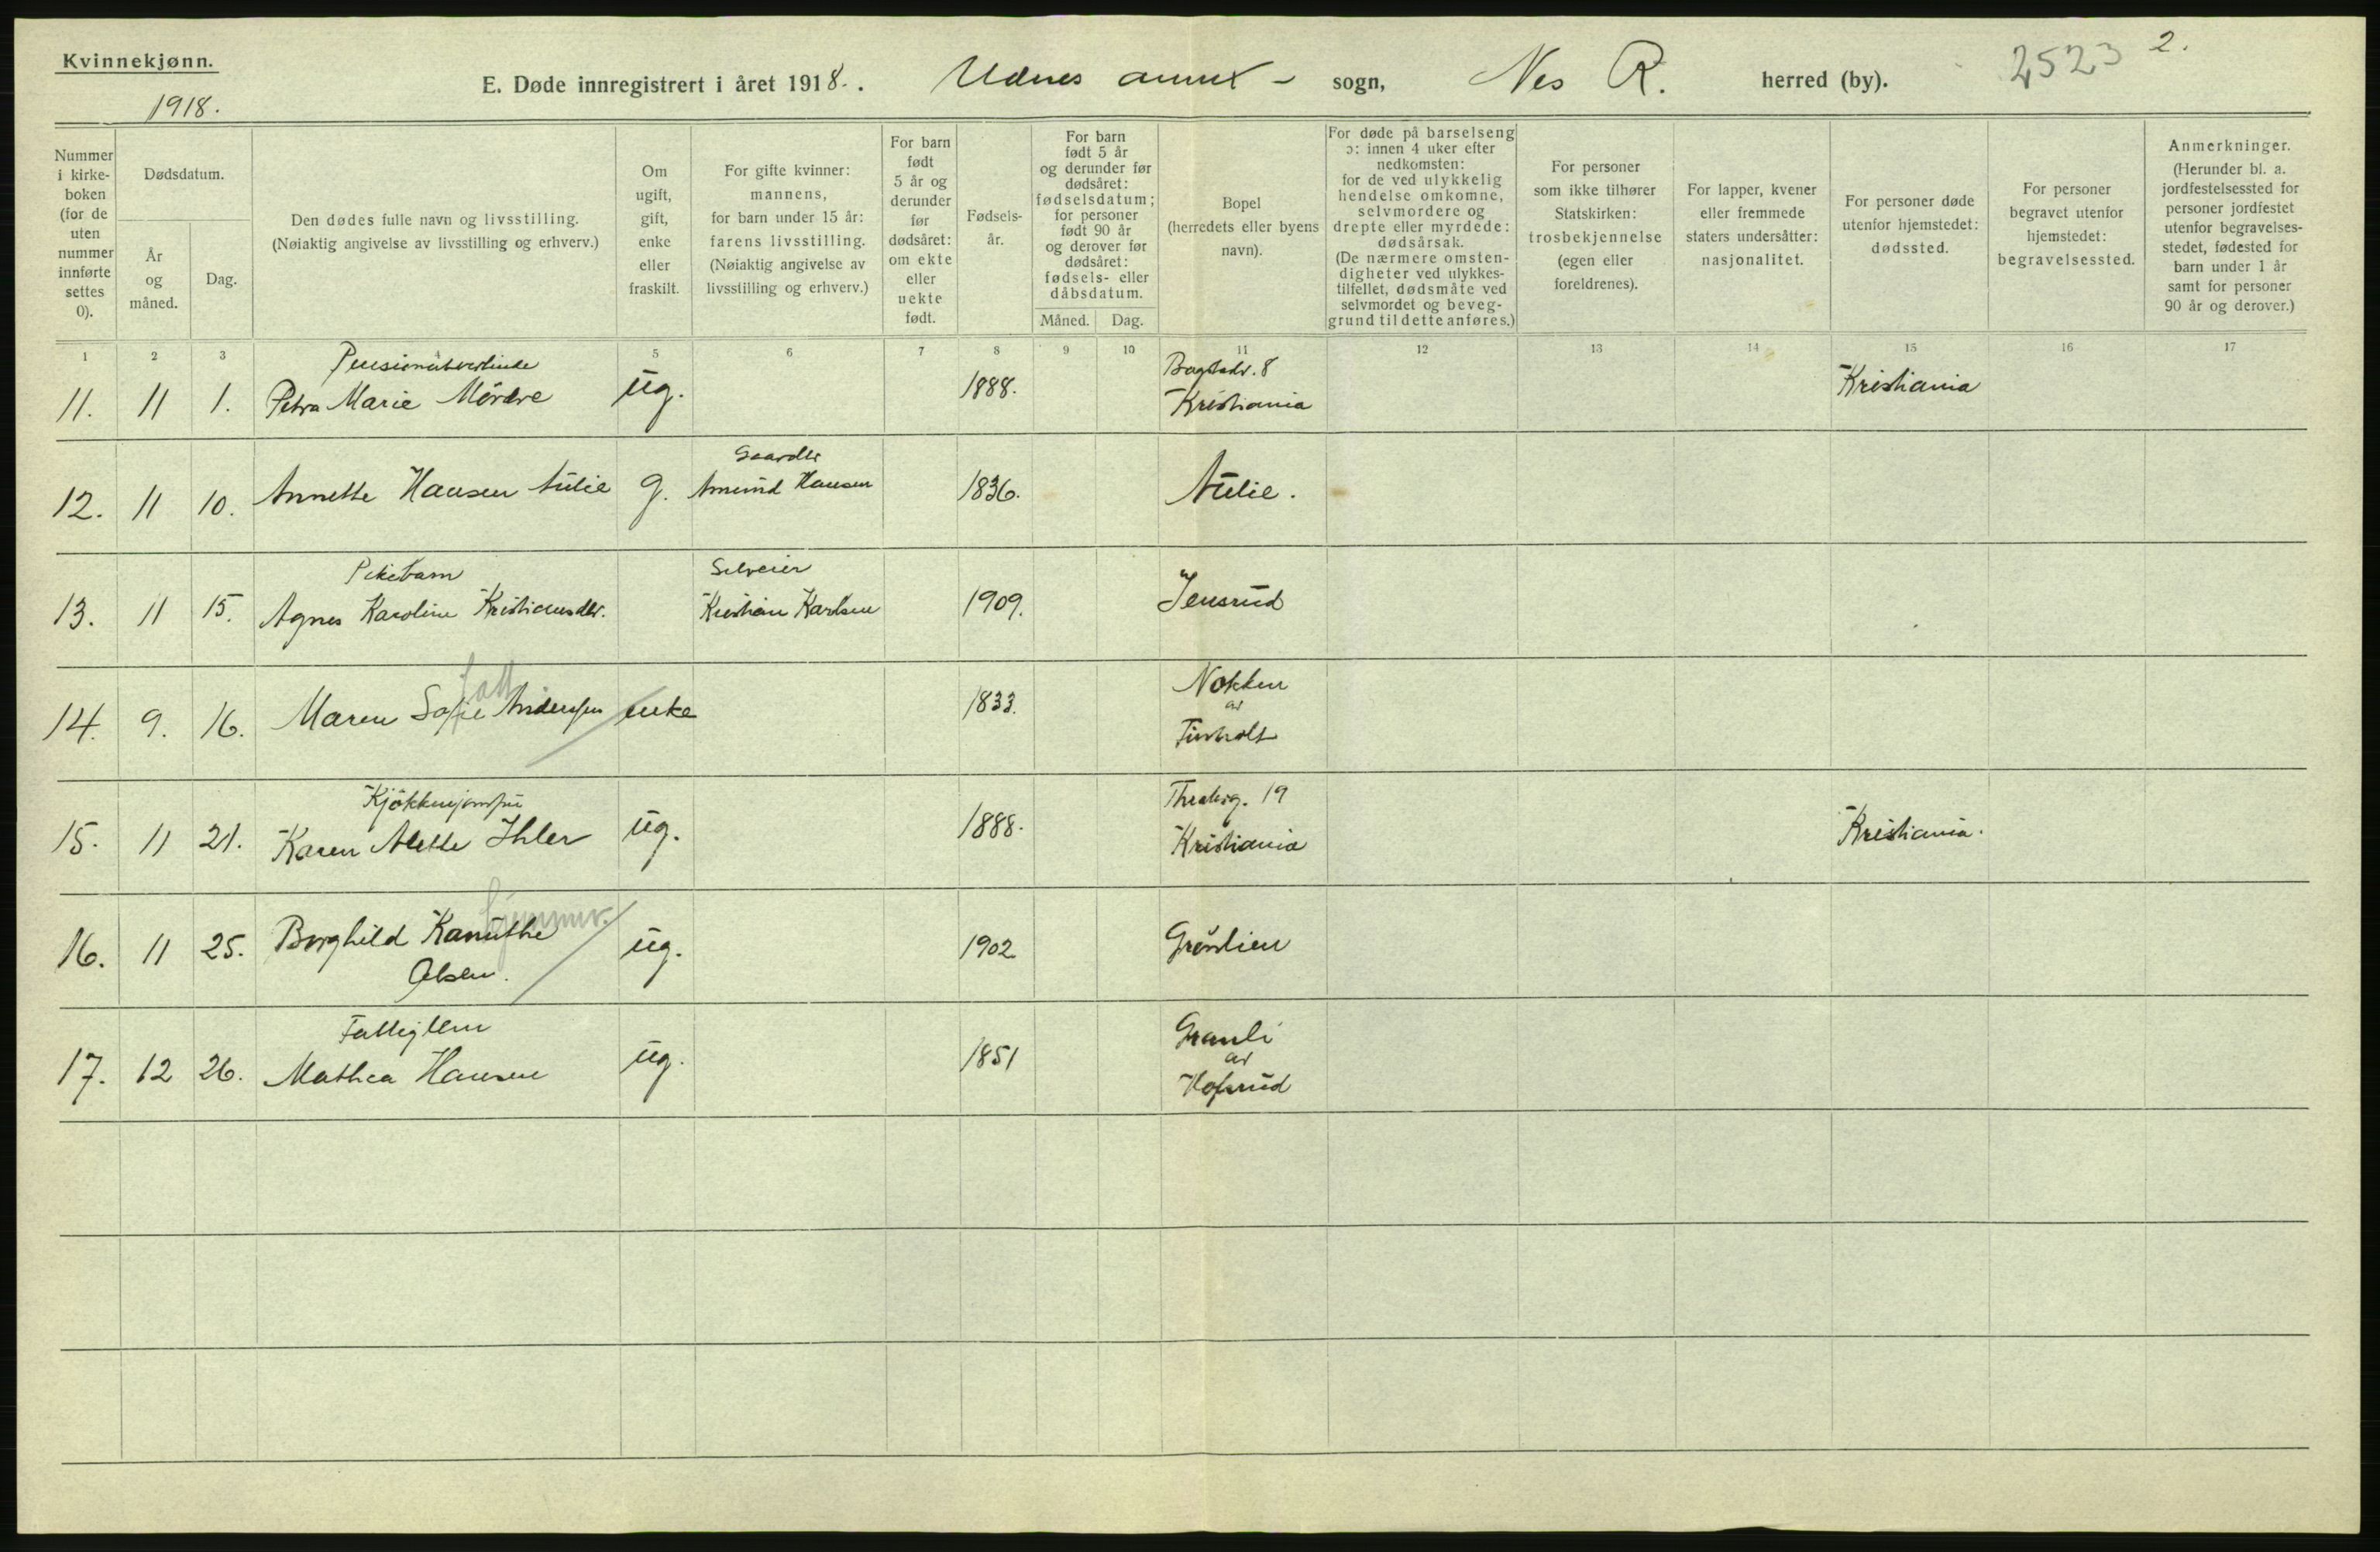 Kvinnekjønn.
1918.
E. Døde innregistrert i året 1918. Udnes annex - sogn, Nes R. herred (by).
2523 2.
Nummer i kirkeboken (for de uten nummer innførte settes 0).
Dødsdatum.
År og måned.
Dag.
Den dødes fulle navn og livsstilling.
(Nøiaktig angivelse av livsstilling og erhverv.)
Om ugift, gift, enke eller fraskilt.
For gifte kvinner: mannens, for barn under 15 år: farens livsstilling.
(Nøiaktig angivelse av livsstilling og erhverv.)
For barn født 5 år og derunder før dødsåret: om ekte eller uekte født.
Fødselsår.
For barn født 5 år og derunder før dødsåret: fødselsdatum; for personer født 90 år og derover før dødsåret: fødsels- eller dåbsdatum.
Måned. Dag.
Bopel (herredets eller byens navn).
For døde på barselseng ɔ: innen 4 uker efter nedkomsten: for de ved ulykkelig hendelse omkomne, selvmordere og drepte eller myrdede: dødsårsak.
(De nærmere omstendigheter ved ulykkestilfellet, dødsmåte ved selvmordet og beveggrund til dette anføres.)
For personer som ikke tilhører Statskirken: trosbekjennelse (egen eller foreldrenes).
For lapper, kvener eller fremmede staters undersåtter: nasjonalitet.
For personer døde utenfor hjemstedet: dødssted.
For personer begravet utenfor hjemstedet: begravelsessted.
Anmerkninger.
(Herunder bl. a. jordfestelsessted for personer jordfestet utenfor begravelsesstedet, fødested for barn under 1 år samt for personer 90 år og derover.)
1 2 3 5 6 7 8 9 10 11 12 13 14 15 16 17
Pensionatvertinde
11. 11 1. Petra Marie Mördre ug. 1888. Kristiania Kristiania
Gaardbr
12. 11 10. Annette Hansen Aulie g. Amund Hansen 1836. Aulie.
Pikebarn Selveier
13. 11 15. Agnes Karoline Kristiansdtr. Kristian Karlsen 1909. Jensrud
fatt
14. 9. 16. Maren Sofie Anderssen enke 1833. Nokken
av
Kjökkenjomfru Theaterg. 19
15. 11 21. Karen Alette Ihler ug. 1888. Kristiania Kristiania.
hjemmev.
16. 11 25. Borghild Kanuthe ug. 1902 Gröndlien
Olsen.
Fattiglem Granli
17. 12 26. Mathea Hansen ug. 1851 av
Hofsrud